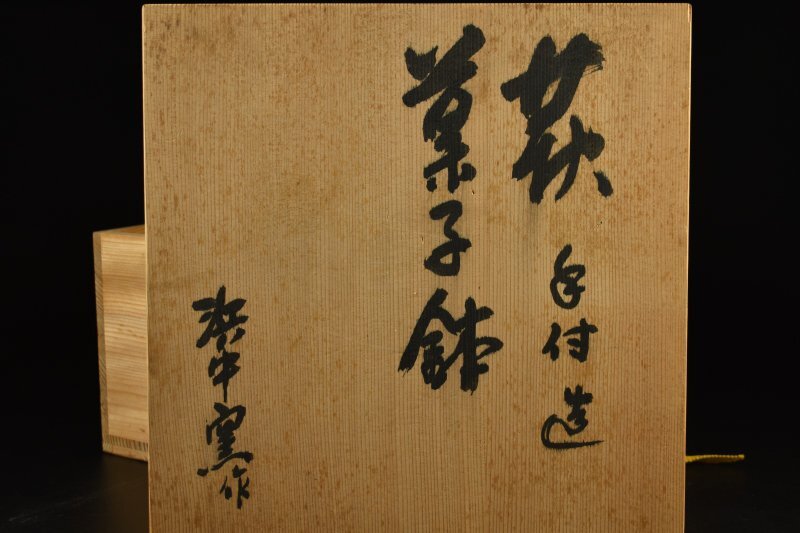 萩 手付造
菓子鉢
浜中窯作